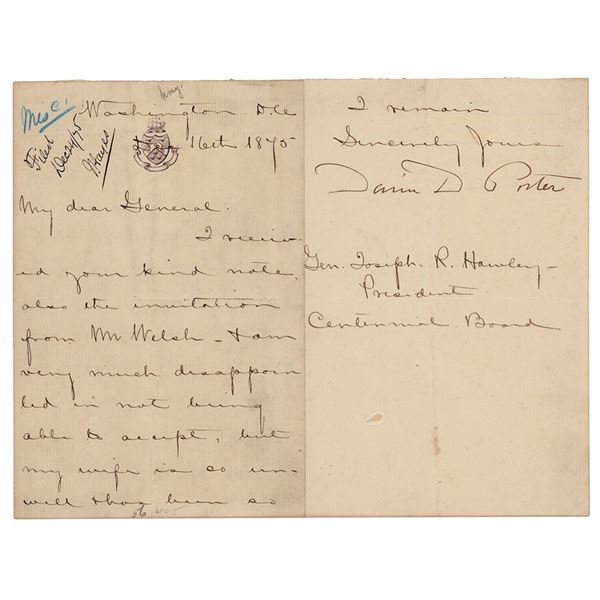 Misc.
Filed
Dec 24/75
Hayes
Navy
Washington D.C
16th 1875
My dear General.
I receiv
ed your kind note,
also the invitation
from Mr Welsh - & am
very much disappoin
ted in not being
able to accept, but
my wife is so un-
well & has been so
56
I remain
Sincerely Yours
David D. Porter
Gen. Joseph. R. Hawley-
President
Centennial Board